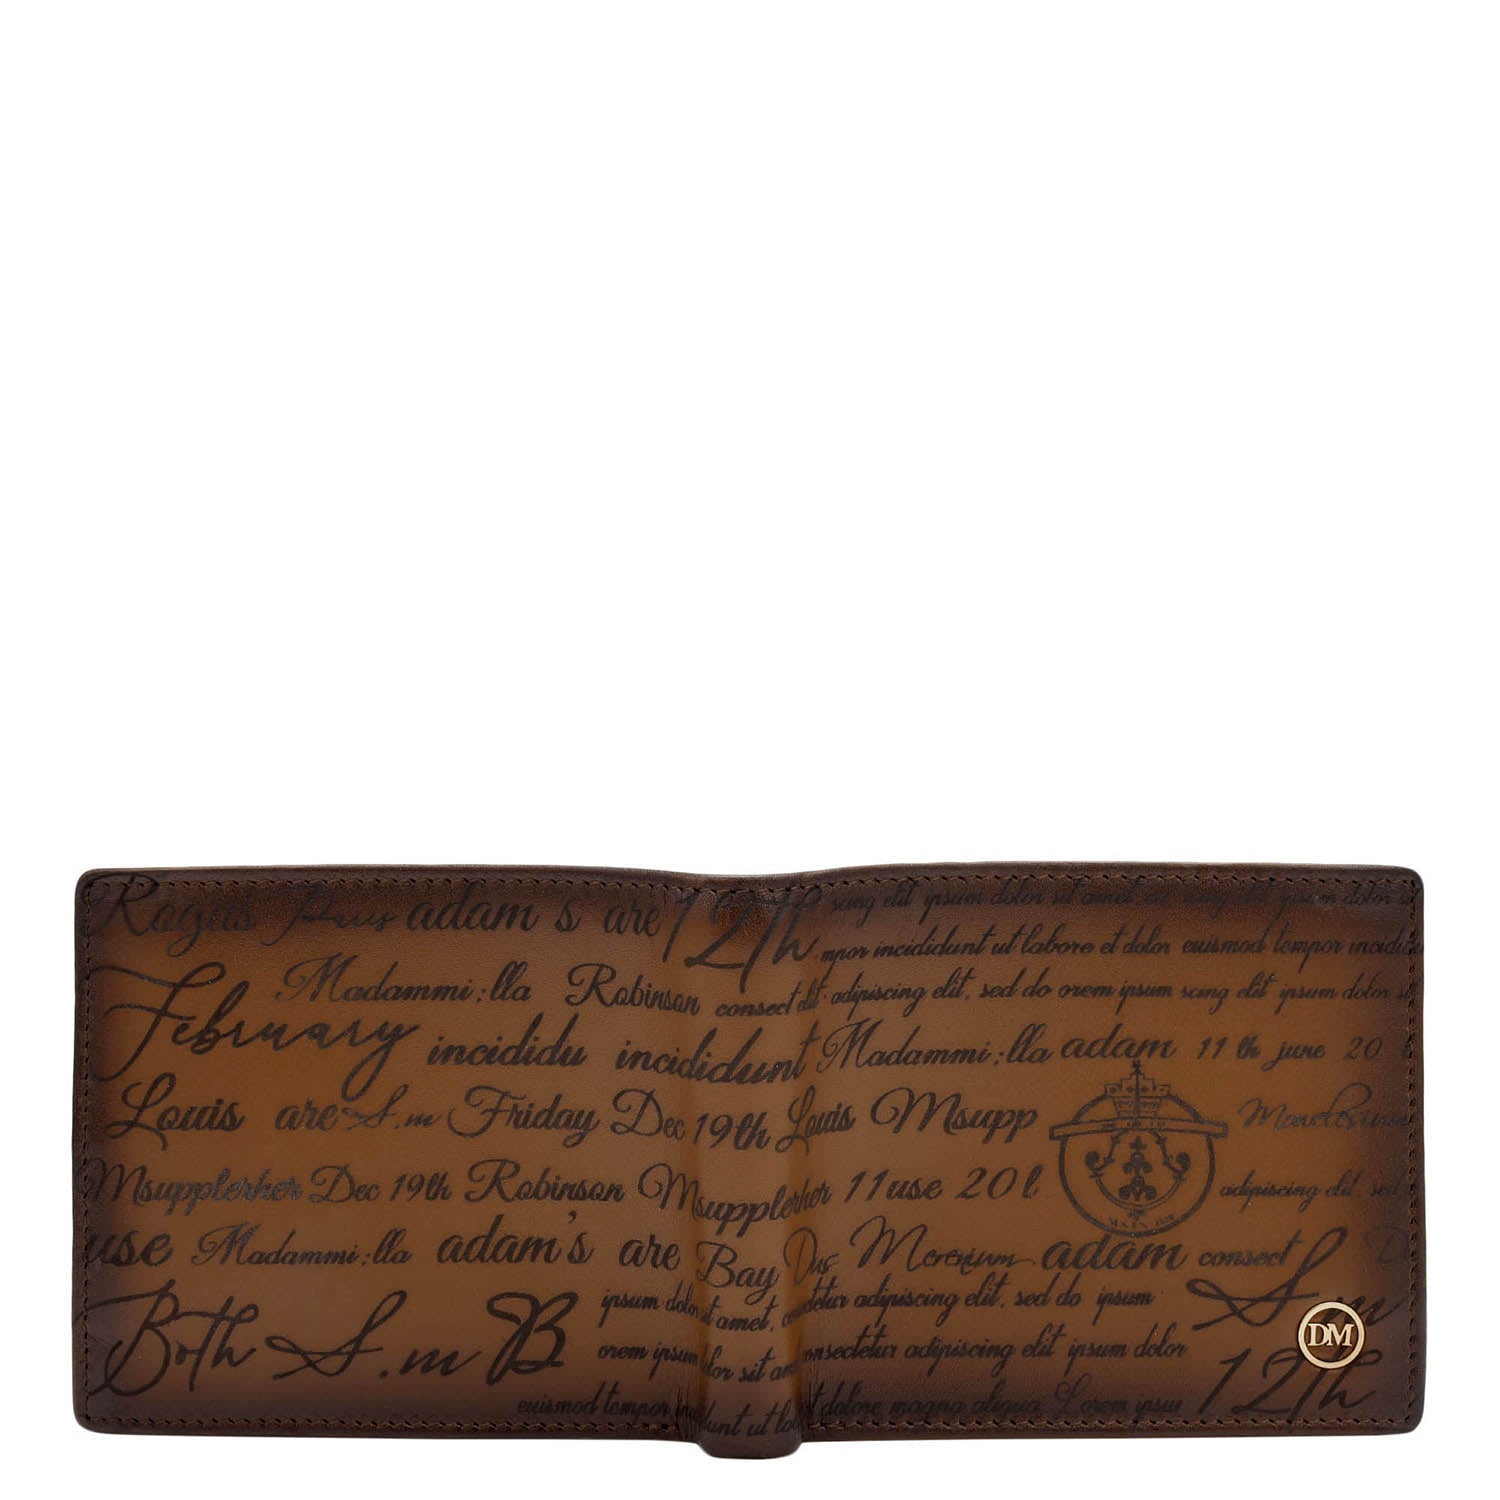 Rogus Paris adam s are 12th scing elit ipsum dolor sit amet
mpor incididunt ut labore et dolor eiusmod tempor incidid
Madammi:lla Robinson consect elit adipiscing elit, sed do orem ipsum scing elit ipsum dolor sit
February incididu incididunt Madammi:lla adam 11 th june 20
Louis are S.m Friday Dec 19th Louis Msupp
Msupplerher Dec 19th Robinson Msupplerher 11 use 20 adipiscing elit, sed
use Madammi:lla adam's are Bay Dus Merenium adam consect D
ipsum dolor sit amet, consectetur adipiscing elit, sed do ipsum S.m
Both S.m B. orem ipsum dolor sit am consectetur adipiscing elit ipsum dolor DM
eiusmod tempor incididunt ut labo t dolore magna aliqua Lorem ipsu 12th